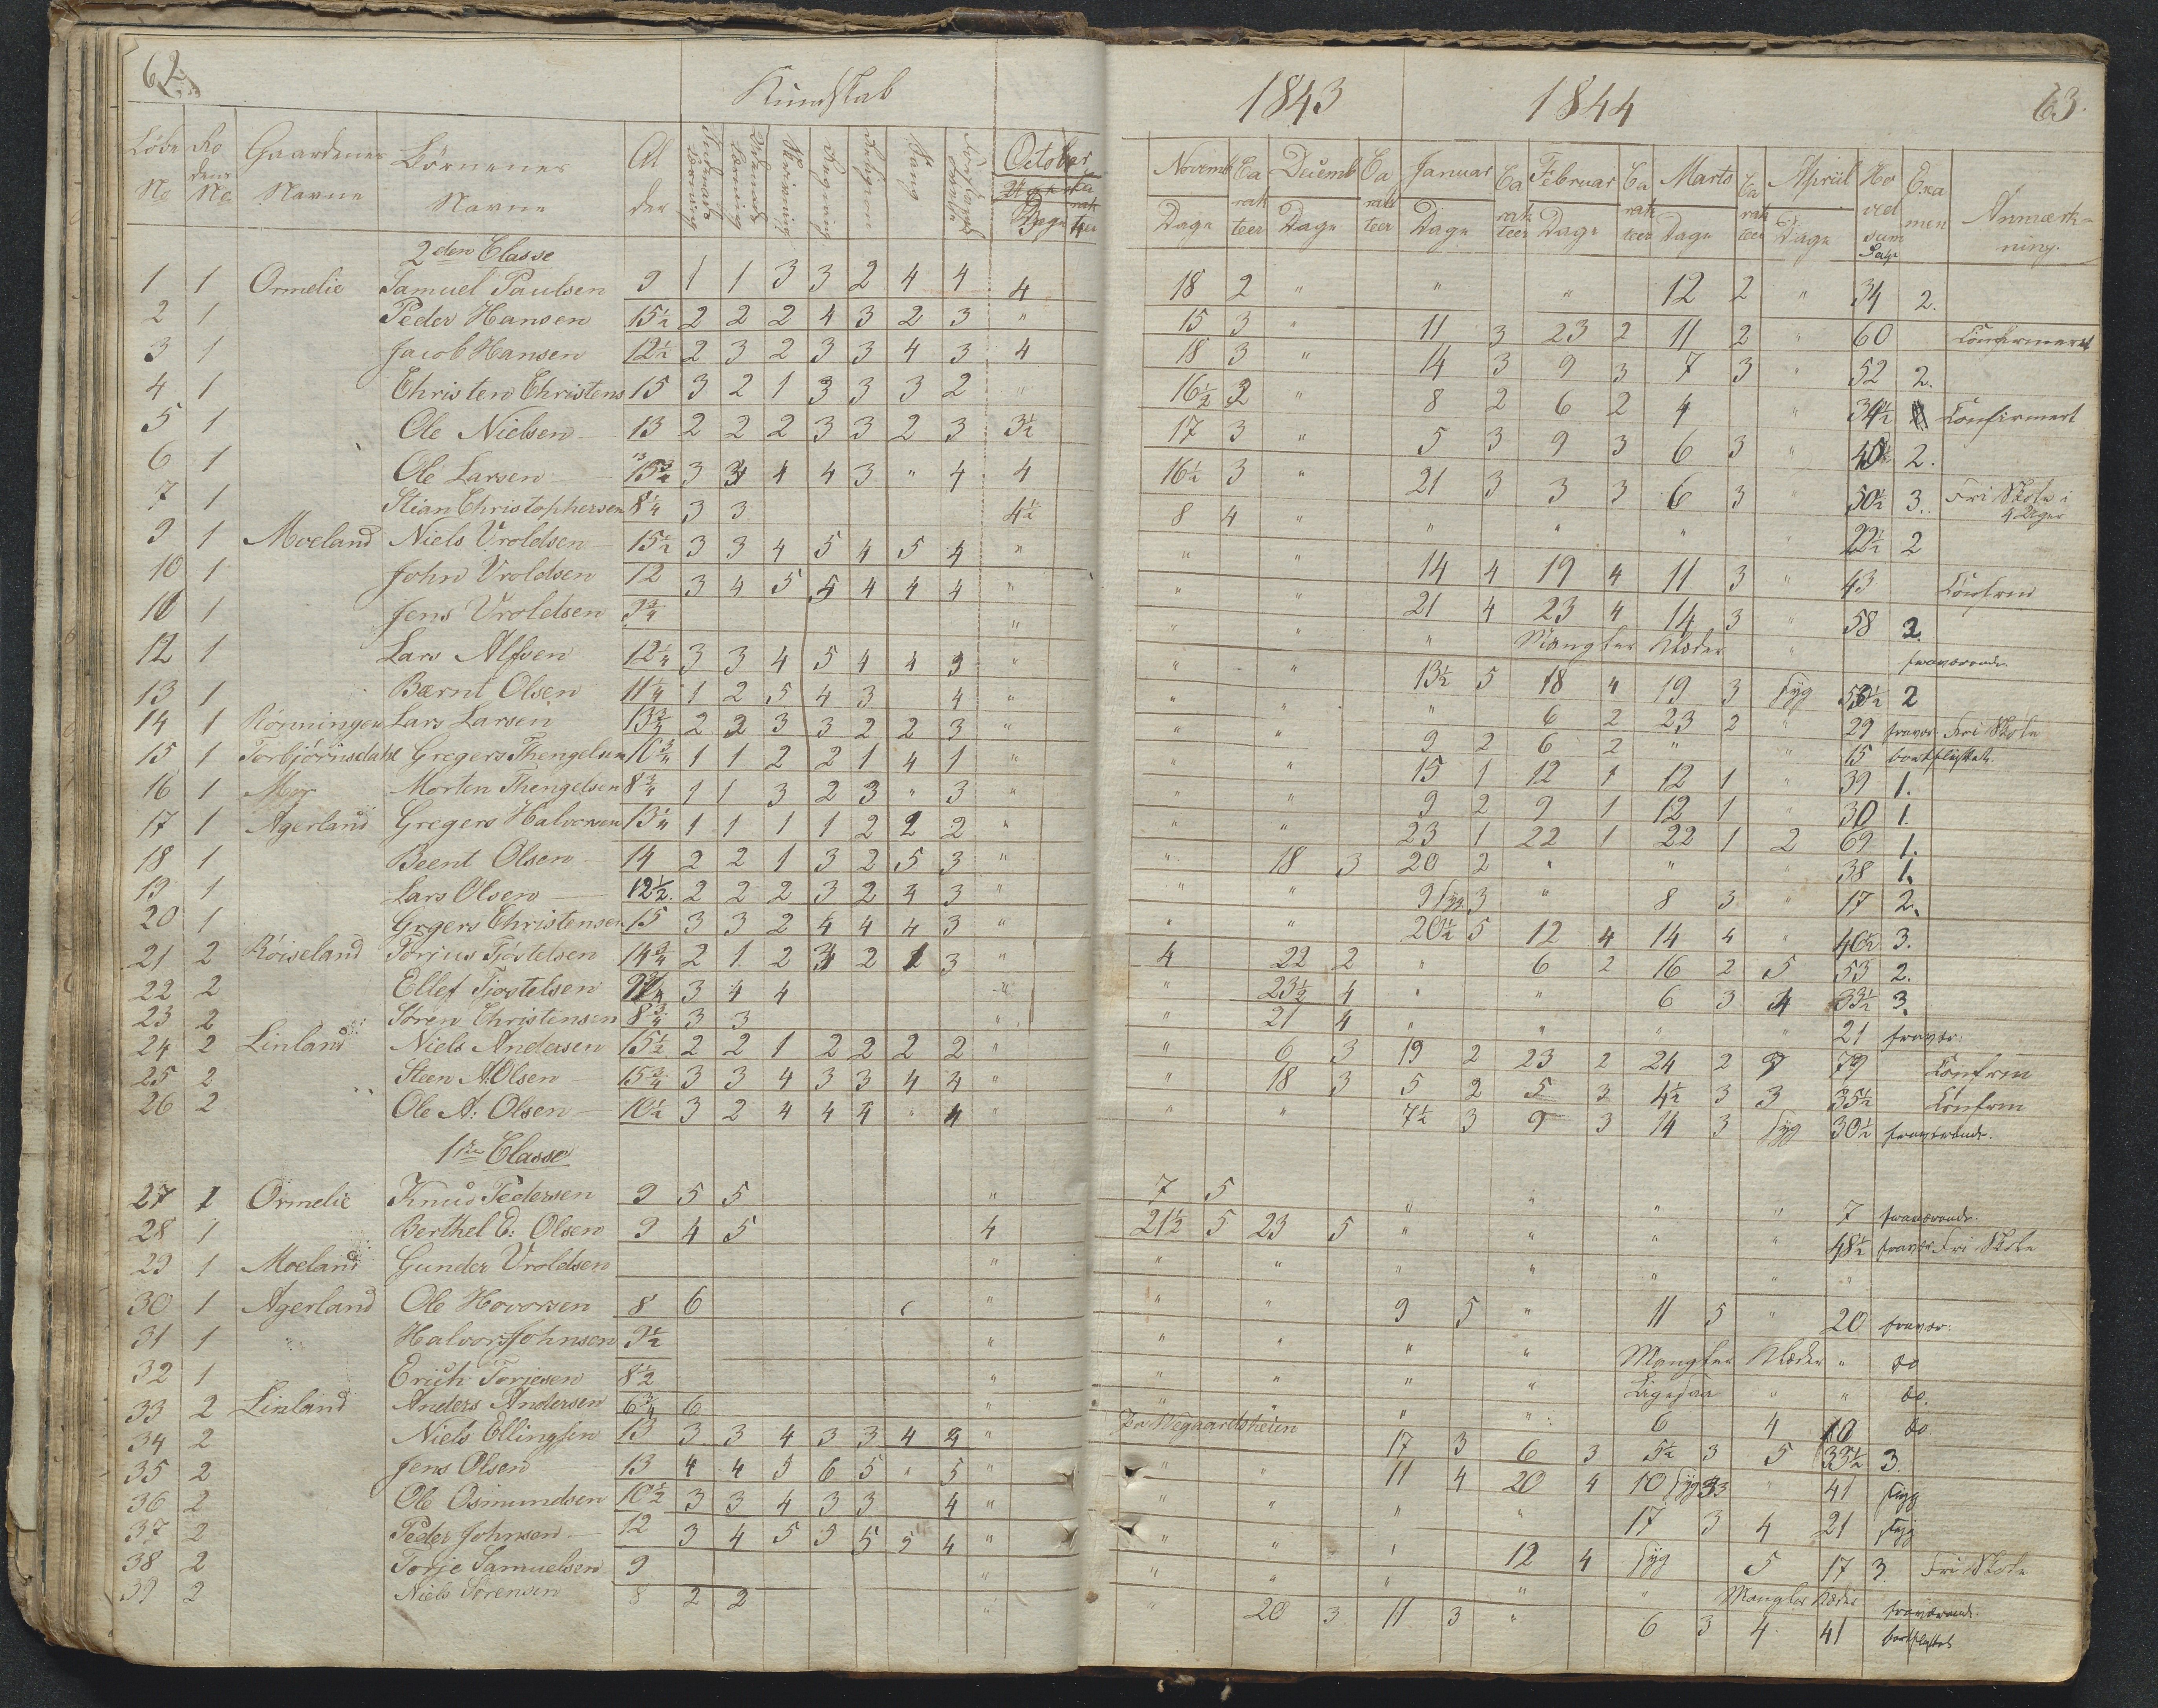 62.
Kundskab
Löbe No
Rodens No
Gaardenes Navne
Börnenes Navne
Alder
Skrivning
Regning
Religion
Sang
October
Dage
2den Classe
1 1 Ormelie Samuel Paulsen 9 1 1 3 3 2 4 4 4
2 1 Peder Hansen 15½ 2 2 2 4 3 2 3 "
3 1 Jacob Hansen 12½ 2 3 2 3 3 4 3 4
4 1 Christen Christens 15 3 2 1 3 3 3 2 "
5 1 Ole Nielsen 13 2 2 2 3 3 2 3 3½
6 1 Ole Larsen 3 4 4 3 " 4 4
7 1 Stian Christophersen 8¼ 3 3 4½
9 1 Moeland Niels Vroldsen 15½ 3 3 4 5 4 5 4 "
10 1 John Vroldsen 12 3 4 5 5 4 4 4 "
10 1 Jens Vroldsen 9¾ "
12 1 Lars Alfsen 12¼ 3 3 4 5 4 4 3 "
13 1 Bærnt Olsen 11¼ 1 2 5 4 3 4 "
14 1 Rønningen Lars Larsen 13¾ 2 2 3 3 2 2 3 "
15 1 Torbjörnsdahl Gregers Thengelsen 10¾ 1 1 2 2 1 4 1 "
16 1 Moy Morten Thengelsen 8¾ 1 1 3 2 3 " 3 "
17 1 Agerland Gregers Halvorsen 13¼ 1 1 1 1 2 2 2 "
18 1 Beent Olsen 14 2 2 1 3 2 5 3 "
19 1 Lars Olsen 12½ 2 2 2 3 2 4 3 "
20 1 Grgers Christensen 15 3 3 2 4 4 4 3 "
21 2 Röiseland Torjus Tjöstelsen 14¾ 2 1 2 3 2 1 3 "
22 2 Ellef Tjostelsen 3 4 4 "
23 2 Sören Christensen 8¾ 3 3 "
24 2 Linland Niels Andersen 15½ 2 2 1 2 2 2 2 "
25 2 Steen A: Olsen 15¾ 3 3 4 3 3 4 4 "
26 2 Ole A: Olsen 10½ 3 2 4 4 4 " 4 "
1ste Classe
27 1 Ormelie Knud Pedersen 9 5 5 "
28 1 Berthel E: Olsen 9 4 5 4
29 1 Moeland Gunder Vroldsen "
30 1 Agerland Ole Hovorsen 8 6 "
31 1 " Halvor Johnsen 9½ "
32 1 Erich Torjesen 8½ "
33 2 Linland Anders Andersen 6¾ 6 "
34 2 Niels Ellingsen 13 3 3 4 3 3 4 4 "
35 2 Jens Olsen 13 4 4 5 6 5 " 5 "
36 2 Ole Osmundsen 10½ 3 3 4 3 3 4 "
37 2 Peder Johnsen 12 3 4 5 5 5 5 4 "
38 2 Torje Samuelsen 9 "
39 2 Niels Sörensen 8 2 2 "
1843 1844 63.
Novemb Dage Carakteer
Decemb Dage Carakteer
Januar Dage Carakteer
Februar Dage Carakteer
Marts Dage Carakteer
April Dage
Hovedsum Dage
Examen
Anmærkning.
18 2 " " " 12 2 " 34 2.
15 3 " 11 3 23 2 11 2 " 60 Confirmeret
18 3 " 14 3 9 3 7 3 " 52 2.
16½ 2 " 8 2 6 2 4 " 34½ Confirmert
17 3 " 5 3 9 3 6 3 " 40½ 2.
16½ 3 " 21 3 3 3 6 3 " 50½ 3. Fri Skole i 4 Uger
8 4 " " " " " 22½ 2
" " 14 4 19 4 11 3 " 43 Confrm
" " 21 4 23 4 14 3 " 58 2.
" " " Mangler Klæder " fraværende
" " 13½ 5 18 4 19 3 Syg 50½ 2
" " " 6 2 23 2 " 29 fravær. Fri Skole
" " 9 2 6 2 " " 15 bortflyttet.
" " 15 1 12 1 12 1 " 39 1.
" " 9 2 9 1 12 1 " 30 1.
" " 23 1 22 1 22 1 2 69 1.
" 18 3 20 2 " " " 38 1.
" " 9 Syg 3 " 8 3 " 17 2.
" " 20½ 5 12 4 14 4 " 46½ 3.
4 22 2 " 6 2 16 2 5 53 2.
" 23½ 4 " " 6 3 4 33½ 3.
" 21 4 " " " " 21 fravær.
" 6 3 19 2 23 2 24 2 7 79 Confrm
" 18 3 5 2 5 3 4½ 3 3 35½ Confrm
" " 7½ 3 9 3 14 3 Syg 30½ fraværende.
7 5 " " " " 7 fraværende.
21½ 5 23 5 " " " " 48½ fravær. Fri Skole
" " " " " " "
" " 9 5 " 11 5 " 20 fravær:
" " " " Mangler Klæder " do
" " " " Ligesaa " " do.
" " " " 6 4 10 do
Paa Vegaardsheien 17 3 6 3 5½ 3 5 33½ 3.
" " 11 4 20 4 10 Syg 3 " 41 syg
" " " " 17 3 4 21 syg
" " " 12 4 Syg 5 17 3. Fri Skole
" " " " " Mangler Klæder fraværende.
" 20 3 11 3 " 6 3 4 41 bortflyttet